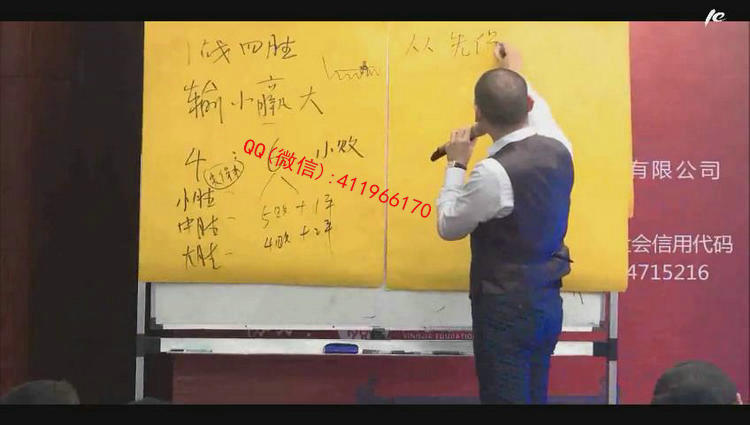 1战四胜
输小赢大
4 : 6 小败
先保本
小胜 -
中胜 -
大胜 -
5败+1平
4败+2平
从 先保
QQ(微信):411966170
有限公司
会信用代码
4715216